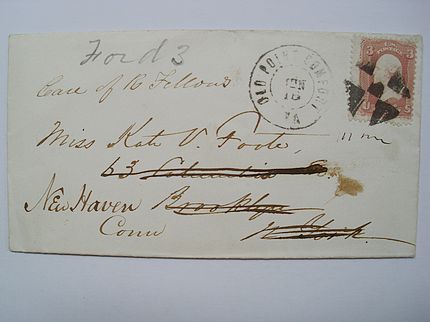 Ford 3
Care of R Fellows
OLD POINT COMFORT
JUN
18
VA
3 3
U S
Miss Kate V. Foote,
63 Columbia St.
New Haven Brooklyn
Conn N. York.